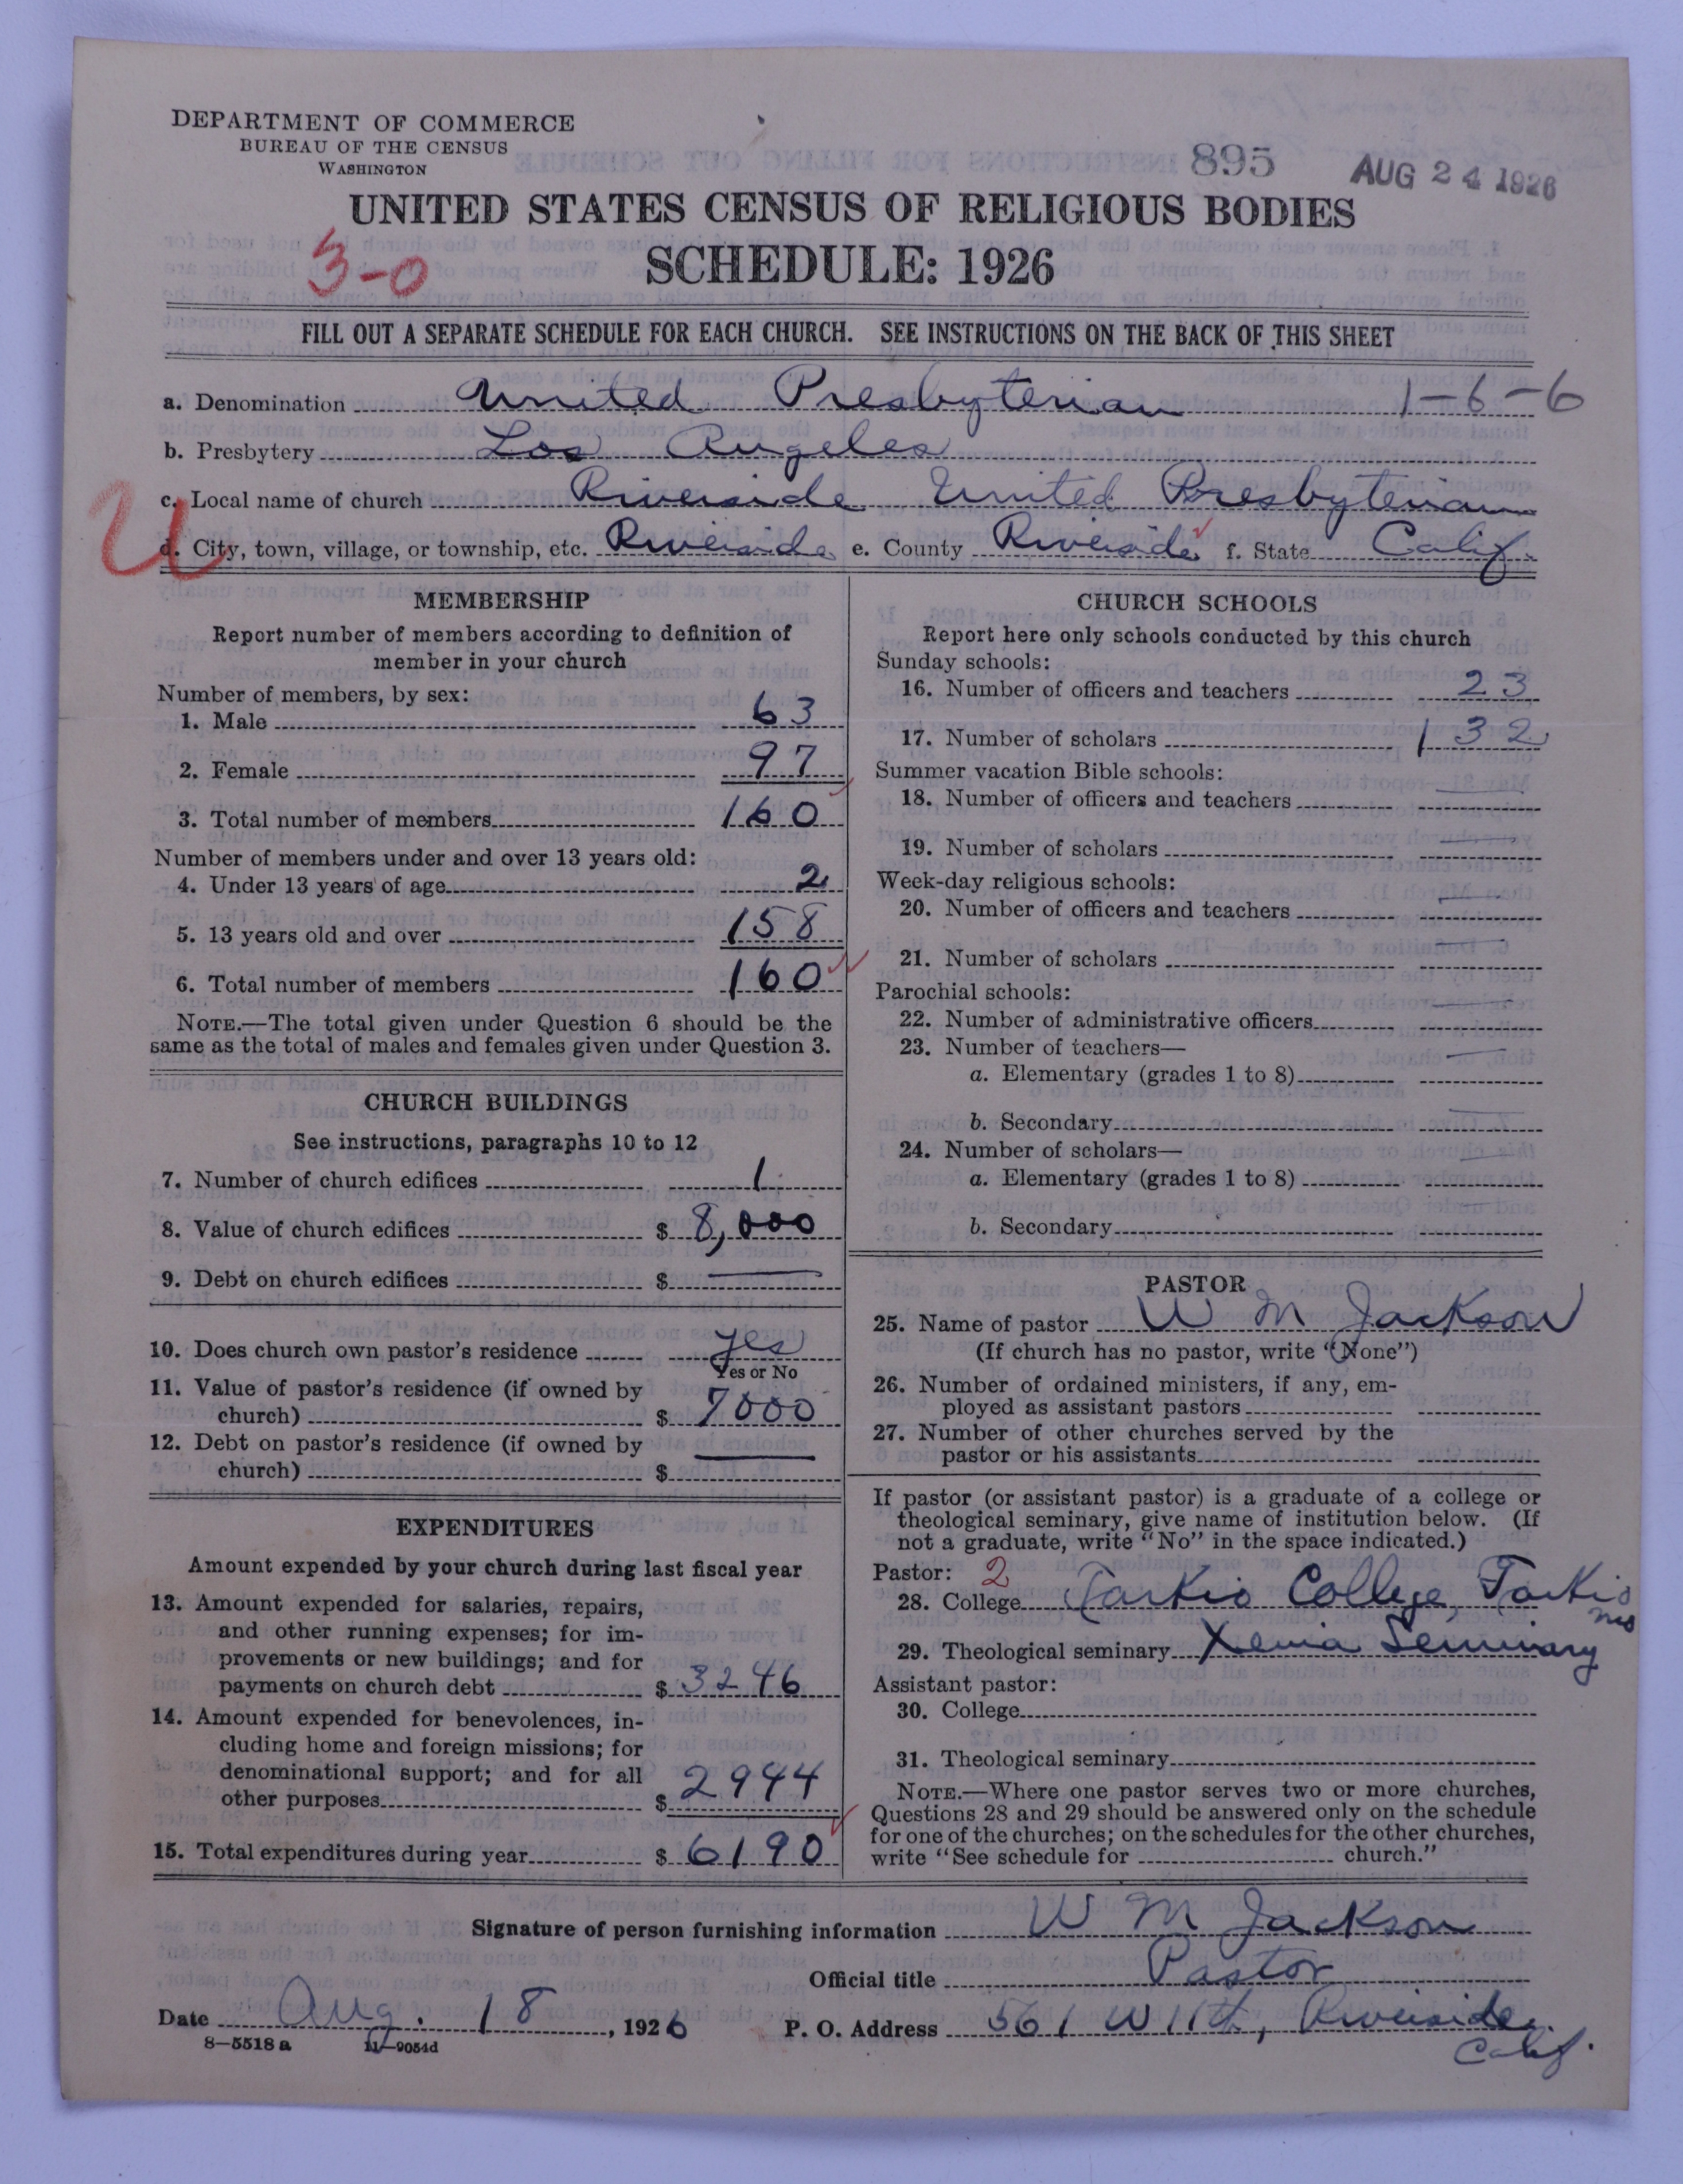 DEPARTMENT OF COMMERCE
BUREAU OF THE CENSUS
WASHINGTON
895
AUG 24 1926
UNITED STATES CENSUS OF RELIGIOUS BODIES
3-0
SCHEDULE: 1926
FILL OUT A SEPARATE SCHEDULE FOR EACH CHURCH. SEE INSTRUCTIONS ON THE BACK OF THIS SHEET
a. Denomination United Presbyterian 1-6-6
b. Presbytery Los Angeles
c. Local name of church Riverside United Presbyterian
U
d. City, town, village, or township, etc. Riverside e. County Riverside f. State Calif.
MEMBERSHIP
Report number of members according to definition of
member in your church
Number of members, by sex:
1. Male 63
2. Female 97
3. Total number of members 160
Number of members under and over 13 years old:
4. Under 13 years of age 2
5. 13 years old and over 158
6. Total number of members 160
NOTE.—The total given under Question 6 should be the
same as the total of males and females given under Question 3.
CHURCH BUILDINGS
See instructions, paragraphs 10 to 12
7. Number of church edifices 1
8. Value of church edifices $ 8,000
9. Debt on church edifices $ —
10. Does church own pastor's residence yes
Yes or No
11. Value of pastor's residence (if owned by
church) $ 7000
12. Debt on pastor's residence (if owned by
church) $ —
EXPENDITURES
Amount expended by your church during last fiscal year
13. Amount expended for salaries, repairs,
and other running expenses; for im-
provements or new buildings; and for
payments on church debt $ 3246
14. Amount expended for benevolences, in-
cluding home and foreign missions; for
denominational support; and for all
other purposes $ 2944
15. Total expenditures during year $ 6190
CHURCH SCHOOLS
Report here only schools conducted by this church
Sunday schools:
16. Number of officers and teachers 23
17. Number of scholars 132
Summer vacation Bible schools:
18. Number of officers and teachers —
19. Number of scholars —
Week-day religious schools:
20. Number of officers and teachers —
21. Number of scholars —
Parochial schools:
22. Number of administrative officers —
23. Number of teachers—
a. Elementary (grades 1 to 8) —
b. Secondary —
24. Number of scholars—
a. Elementary (grades 1 to 8) —
b. Secondary —
PASTOR
25. Name of pastor W M Jackson
(If church has no pastor, write "None")
26. Number of ordained ministers, if any, em-
ployed as assistant pastors
27. Number of other churches served by the
pastor or his assistants
If pastor (or assistant pastor) is a graduate of a college or
theological seminary, give name of institution below. (If
not a graduate, write "No" in the space indicated.)
Pastor: 2
28. College Tarkio College, Tarkio
Mo
29. Theological seminary Xenia Seminary
Assistant pastor:
30. College
31. Theological seminary
NOTE.—Where one pastor serves two or more churches,
Questions 28 and 29 should be answered only on the schedule
for one of the churches; on the schedules for the other churches,
write "See schedule for church."
Signature of person furnishing information W M Jackson
Official title Pastor
Date Aug. 18, 1926
P. O. Address 561 W 11th, Riverside,
Calif.
8—5518 a 11—9054d